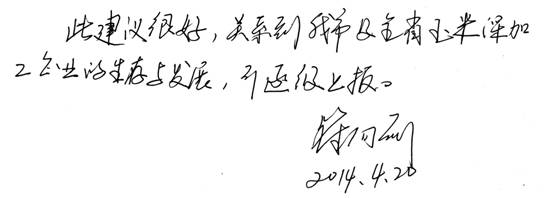 此建议很好，关系到我市及全省玉米深加
工企业的生存与发展，可逐级上报。
2014.4.20